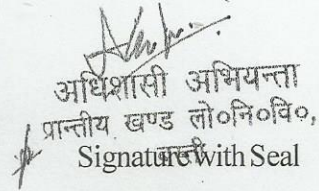 अधिशासी अभियन्ता
प्रान्तीय खण्ड लो०नि०वि०,
Signature with Seal